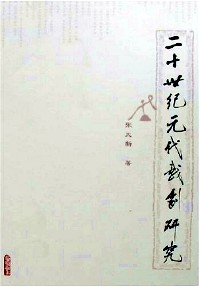 二十世纪元代戏剧研究
张大新 著